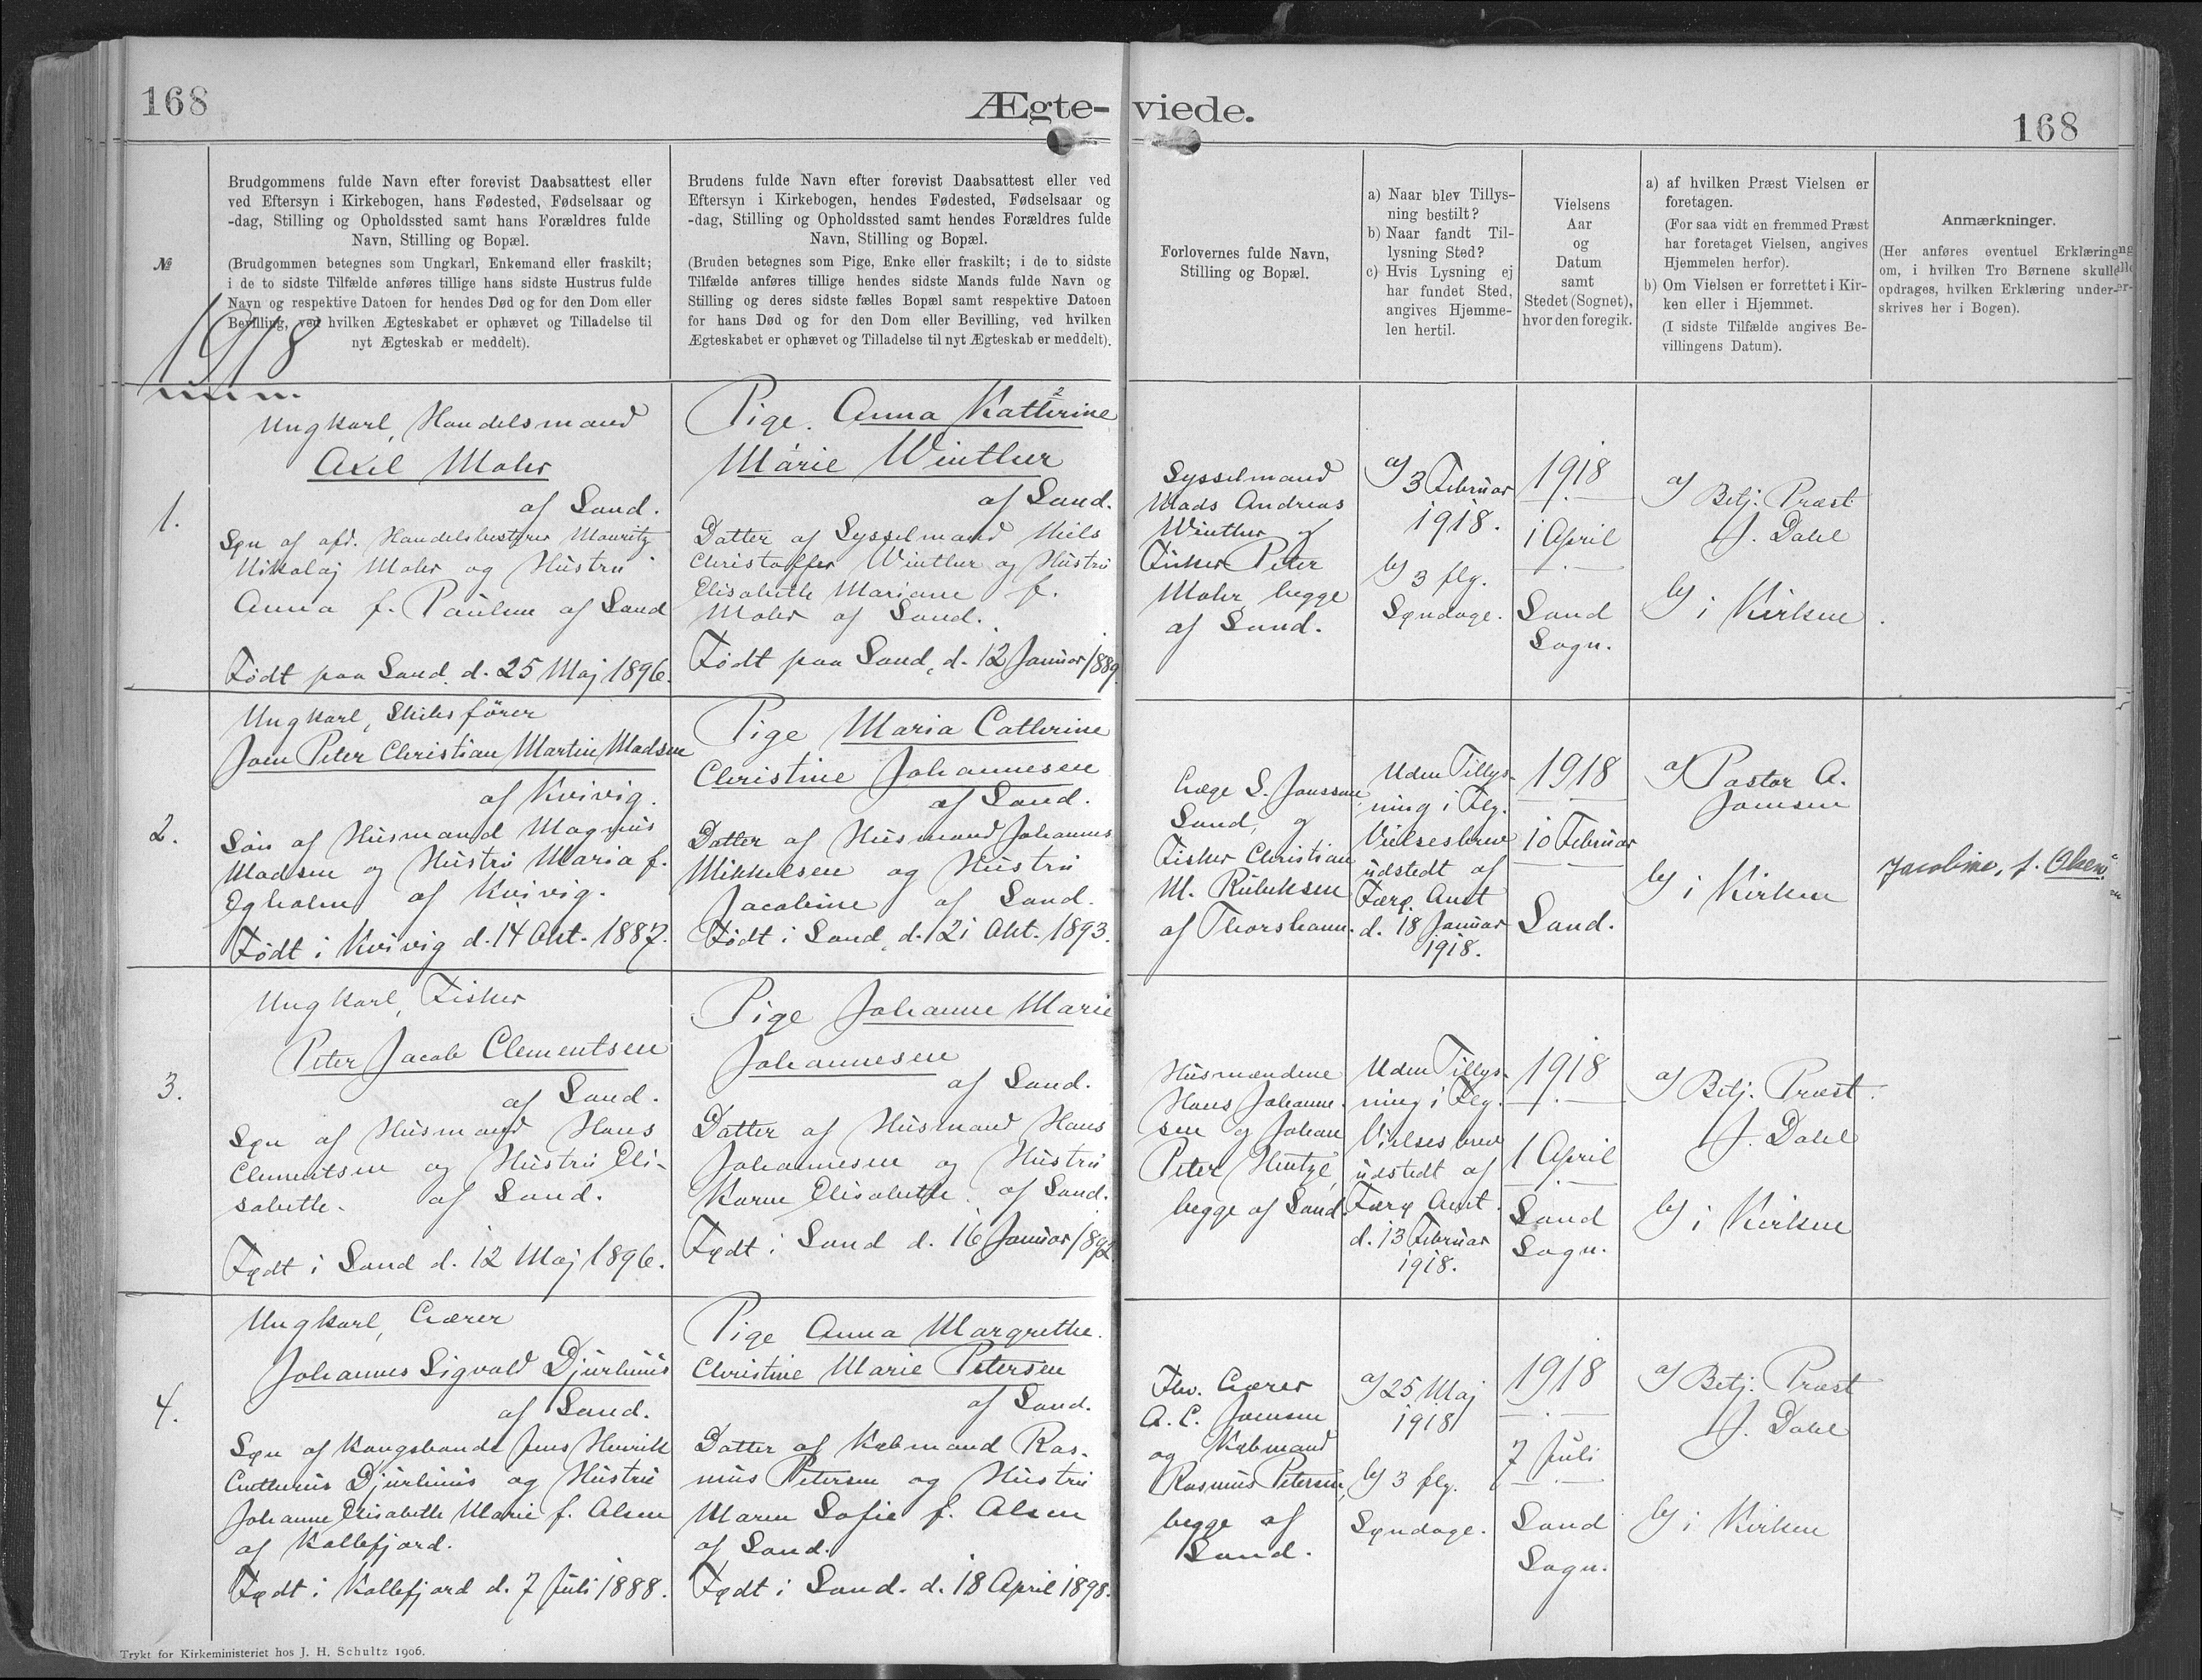 168
Ægte-viede.
168
№
Brudgommens fulde Navn efter forevist Daabsattest eller
ved Eftersyn i Kirkebogen, hans Fødested, Fødselsaar og
-dag, Stilling og Opholdssted samt hans Forældres fulde
Navn, Stilling og Bopæl.
(Brudgommen betegnes som Ungkarl, Enkemand eller fraskilt;
i de to sidste Tilfælde anføres tillige hans sidste Hustrus fulde
Navn og respektive Datoen for hendes Død og for den Dom eller
Bevilling, ved hvilken Ægteskabet er ophævet og Tilladelse til
nyt Ægteskab er meddelt).
Brudens fulde Navn efter forevist Daabsattest eller ved
Eftersyn i Kirkebogen, hendes Fødested, Fødselsaar og
-dag, Stilling og Opholdssted samt hendes Forældres fulde
Navn, Stilling og Bopæl.
(Bruden betegnes som Pige, Enke eller fraskilt; i de to sidste
Tilfælde anføres tillige hendes sidste Mands fulde Navn og
Stilling og deres sidste fælles Bopæl samt respektive Datoen
for hans Død og for den Dom eller Bevilling, ved hvilken
Ægteskabet er ophævet og Tilladelse til nyt Ægteskab er meddelt).
Forlovernes fulde Navn,
Stilling og Bopæl.
a) Naar blev Tillys-
ning bestilt?
b) Naar fandt Til-
lysning Sted?
c) Hvis Lysning ej
har fundet Sted,
angives Hjemme-
len hertil.
Vielsens
Aar
og
Datum
samt
Stedet (Sognet),
hvor den foregik.
a) af hvilken Præst Vielsen er
foretagen.
(For saa vidt en fremmed Præst
har foretaget Vielsen, angives
Hjemmelen herfor).
b) Om Vielsen er forrettet i Kir-
ken eller i Hjemmet.
(I sidste Tilfælde angives Be-
villingens Datum).
Anmærkninger.
(Her anføres eventuel Erklæring
om, i hvilken Tro Børnene skulle
opdrages, hvilken Erklæring under-
skrives her i Bogen).
1918
1.
Ungkarl, Handelsmand
Axel Mohr
af Sand.
Søn af afd. Handelsbestyrer Mauritz
Nikolaj Mohr og Hustru
Anna f. Paulsen af Sand
Født paa Sand d. 25 Maj 1896.
Pige. Anna Kathrine
Marie Winther
af Sand.
Datter af Sysselmand Niels
Christoffer Winther og Hustru
Elisabeth Mariane f.
Mohr af Sand.
Født paa Sand, d. 12 Januar 1889.
Sysselmand
Mads Andreas
Winther og
Fisker Peter
Mohr begge
af Sand.
a) 3 Februar
1918.
b) 3 flg.
Søndage.
1918
1 April
Sand
Sogn.
a) Betj. Præst
J. Dahl
b) i Kirken
2.
Ungkarl, Skibsfører
Joen Peter Christian Martin Madsen
af Kvivig.
Sön af Husmand Magnus
Madsen og Hustru Maria f.
Egholm af Kvivig.
Født i Kvivig d. 14 Okt. 1887.
Pige Maria Cathrine
Christine Johannesen
af Sand.
Datter af Husmand Johannes
Mikkelsen og Hustru
Jacobine af Sand.
Født i Sand, d. 21 Okt. 1893.
Læge S. Jonsson
Sand, og
Fisker Christian
M. Rubeksen
af Thorshavn.
Uden Tillys-
ning i Flg.
Vielsesbrev
udstedt af
Færø Amt
d. 18 Januar
1918.
1918
10 Februar
Sand.
a) Pastor A.
Joensen
b) i Kirken
Jacobine, f. Olsen.
3.
Ungkarl, Fisker
Peter Jacob Clementsen
af Sand.
Søn af Husmand Hans
Clementsen og Hustru Eli-
sabeth. af Sand.
Født i Sand d. 12 Maj 1896.
Pige Johanne Marie
Johannesen
af Sand.
Datter af Husmand Hans
Johannesen og Hustru
Karen Elisabeth. af Sand.
Født i Sand d. 16 Januar 1892.
Husmændene
Hans Johanne-
sen og Johan
Peter Hentze,
begge af Sand.
Uden Tillys-
ning i Flg.
Vielsesbrev
udstedt af
Færø Amt.
d. 13 Februar
1918.
1918
1 April
Sand
Sogn.
a) Betj. Præst
J. Dahl
b) i Kirken
4.
Ungkarl, Lærer
Johannes Sigvald Djurhuus
af Sand.
Søn af Kongsbonde Jens Henrik
Guttorms Djurhuus og Hustru
Johanne Elisabeth Marie f. Olsen
af Kollefjord.
Født i Kollefjord d. 7 Juli 1888.
Pige Anna Margrethe
Christine Marie Petersen
af Sand.
Datter af Købmand Ras-
mus Petersen og Hustru
Maren Sofie f. Olsen
af Sand.
Født i Sand. d. 18 April 1898.
Fhv. Lærer
A. C. Joensen
og Købmand
Rasmus Petersen,
begge af
Sand.
a) 25 Maj
1918
b) 3 flg.
Søndage.
1918
7 Juli
Sand
Sogn.
a) Betj. Præst
J. Dahl
b) i Kirken
Trykt for Kirkeministeriet hos J. H. Schultz 1906.